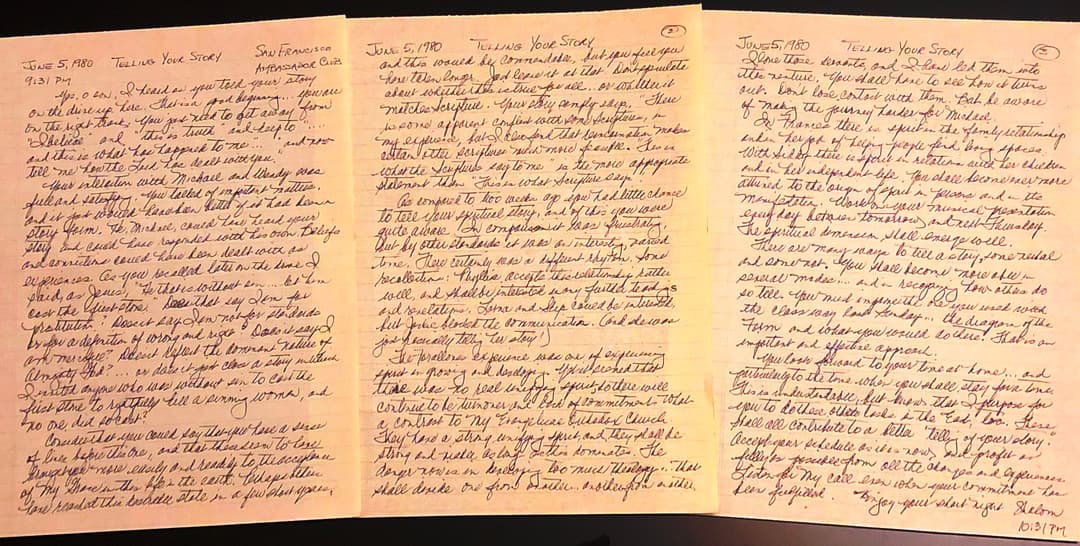 June 5, 1980 Telling Your Story San Francisco
9:31 PM Ambassador Club
Yes, o son, I heard as you told your story
on the drive up here. That is a good beginning... you are
on the right track. You just need to get away from
"I believe" and "this is truth" and keep to "....
and this is what has happened to me..." "and now
tell me how the Lord has dealt with you."
Your interaction with Michael and Wendy was
full and satisfying. You talked of important matters,
and it just would have been better if it had been in
story form. He, Michael, could have heard your
story and could have responded with his own. Beliefs
and convictions could have been dealt with as
experiences. As you recalled later on the drive I
said, as Jesus, "He that is without sin... let him
cast the first stone." Does that say I am for
prostitution? Does it say I am not for standards
or for a definition of wrong and right? Does it say I
am merciful? Does it reflect the dominant nature of
Almighty God?... or does it just close a story in which
I invited anyone who was without sin to cast the
first stone to rightfully kill a sinning woman, and
no one did so cast?
Consider that you could say that you have a sense
of lives before this one, and that these seem to have
brought you more easily and readily to the acceptance
of My Grace in this life in the earth. Perhaps others
have reached this desirable state in a few short years,
2)
June 5, 1980 Telling Your Story
and this would be commendable, but you feel you
have taken longer. Just leave it at that. Don't speculate
about whether this is true for all... or whether it
matches Scripture. Your story simply says, "There
is some apparent conflict with some Scriptures, in
my experience, but I even find that reincarnation makes
certain other Scriptures much more possible. This is
what the Scriptures say to me" is the more appropriate
statement than "This is what Scripture says."
As compared to two weeks ago you had little chance
to tell your spiritual story, and of this you were
quite aware. In comparison it was frustrating.
But by other standards it was an interesting, varied
time. There certainly was a different rhythm. Some
recollections: Phyllis accepts this relationship rather
well, and shall be interested in any further teachings
and revelations. Lorna and Skip could be interested,
but Julie blocked the communication. (And she was
just basically telling her story)
The experience was one of experiencing
spirit in growing and developing. You sensed that
there was no real unifying spirit, so there will
continue to be turnover and lack of commitment. What
a contrast to My Evangelical Outdoor Church
They have a strong unifying spirit, and they shall be
strong and viable as long as this dominates. The
danger now is in developing too much theology... that
shall divide one from another... another from another.
3)
June 5, 1980 Telling Your Story
I love those servants, and I have led them into
this venture. You shall have to see how it turns
out. Don't lose contact with them. But be aware
of making the journey harder for Michael.
In Frances there is spirit in the family relationship
and in her job of helping people find living spaces.
With there is spirit in relation with her children
and in her independent life. You shall become ever more
attuned to the origin of spirit in persons and in its
manifestation. Work on your musical presentation
every day between tomorrow and next Thursday.
The spiritual dimension shall emerge well.
There are many ways to tell a story, some verbal
and some not. You shall become more able in
several modes... and in recognizing how others do
so tell. You must implement the one you used with
the class way last Sunday... the diagram of the
Farm and what you would do there. That is an
important and effective approach.
You look forward to your time at home... and
particularly to the time when you shall stay for a time.
This is understandable, but know that I purpose for
you to do these other tasks in the East, too. These
shall all contribute to a better "telling of your story."
Accept your schedule as it is now, and profit as
fully as possible from all the changes and experiences
Listen for My call even when your commitment has
been fulfilled. Enjoy your short night Shalom
10:31 PM